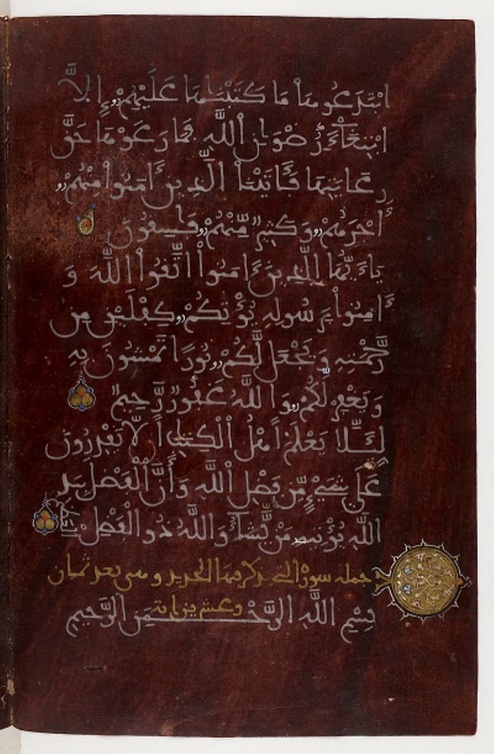 ابْتَدَعُوهَا مَا كَتَبْنَٰهَا عَلَيْهِمُۥ إِلَّا
ابْتِغَآءَ رِضْوَٰنِ اللَّهِ فَمَا رَعَوْهَا حَقَّ
رِعَايَتِهَا فَـَٔاتَيْنَا الَّذِينَ ءَامَنُوا مِنْهُمُۥ
أَجْرَهُمْ وَكَثِيرٌ مِّنْهُمْ فَٰسِقُونَ
يَٰٓأَيُّهَا الَّذِينَ ءَامَنُوا اتَّقُوا اللَّهَ وَ
ءَامِنُوا بِرَسُولِهِ يُؤْتِكُمْ كِفْلَيْنِ مِن
رَّحْمَتِهِ وَيَجْعَل لَّكُمْ نُورًا تَمْشُونَ بِهِ
وَيَغْفِرْ لَكُمْ وَاللَّهُ غَفُورٌ رَّحِيمٌ
لِئَلَّا يَعْلَمَ أَهْلُ الْكِتَٰبِ أَلَّا يَقْدِرُونَ
عَلَىٰ شَيْءٍ مِّن فَضْلِ اللَّهِ وَأَنَّ الْفَضْلَ بِيَدِ
اللَّهِ يُؤْتِيهِ مَن يَّشَآءُ وَاللَّهُ ذُو الْفَضْلِ الْعَظِيمِ
جملة سورة التي يذكر فيها الحديد وهي ثمان
وعشرين اية
بِسْمِ اللَّهِ الرَّحْمَٰنِ الرَّحِيمِ